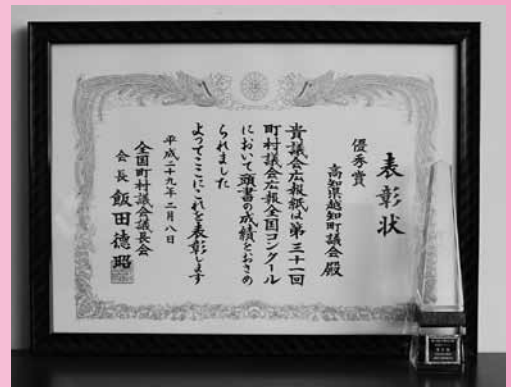 表彰状
優秀賞
高知県越知町議会殿
貴議会広報紙は第三十一回
町村議会広報全国コンクール
において頭書の成績をおさめ
られました
よってここにこれを表彰します
平成二十九年二月八日
全国町村議会議長会
会長 飯田徳昭